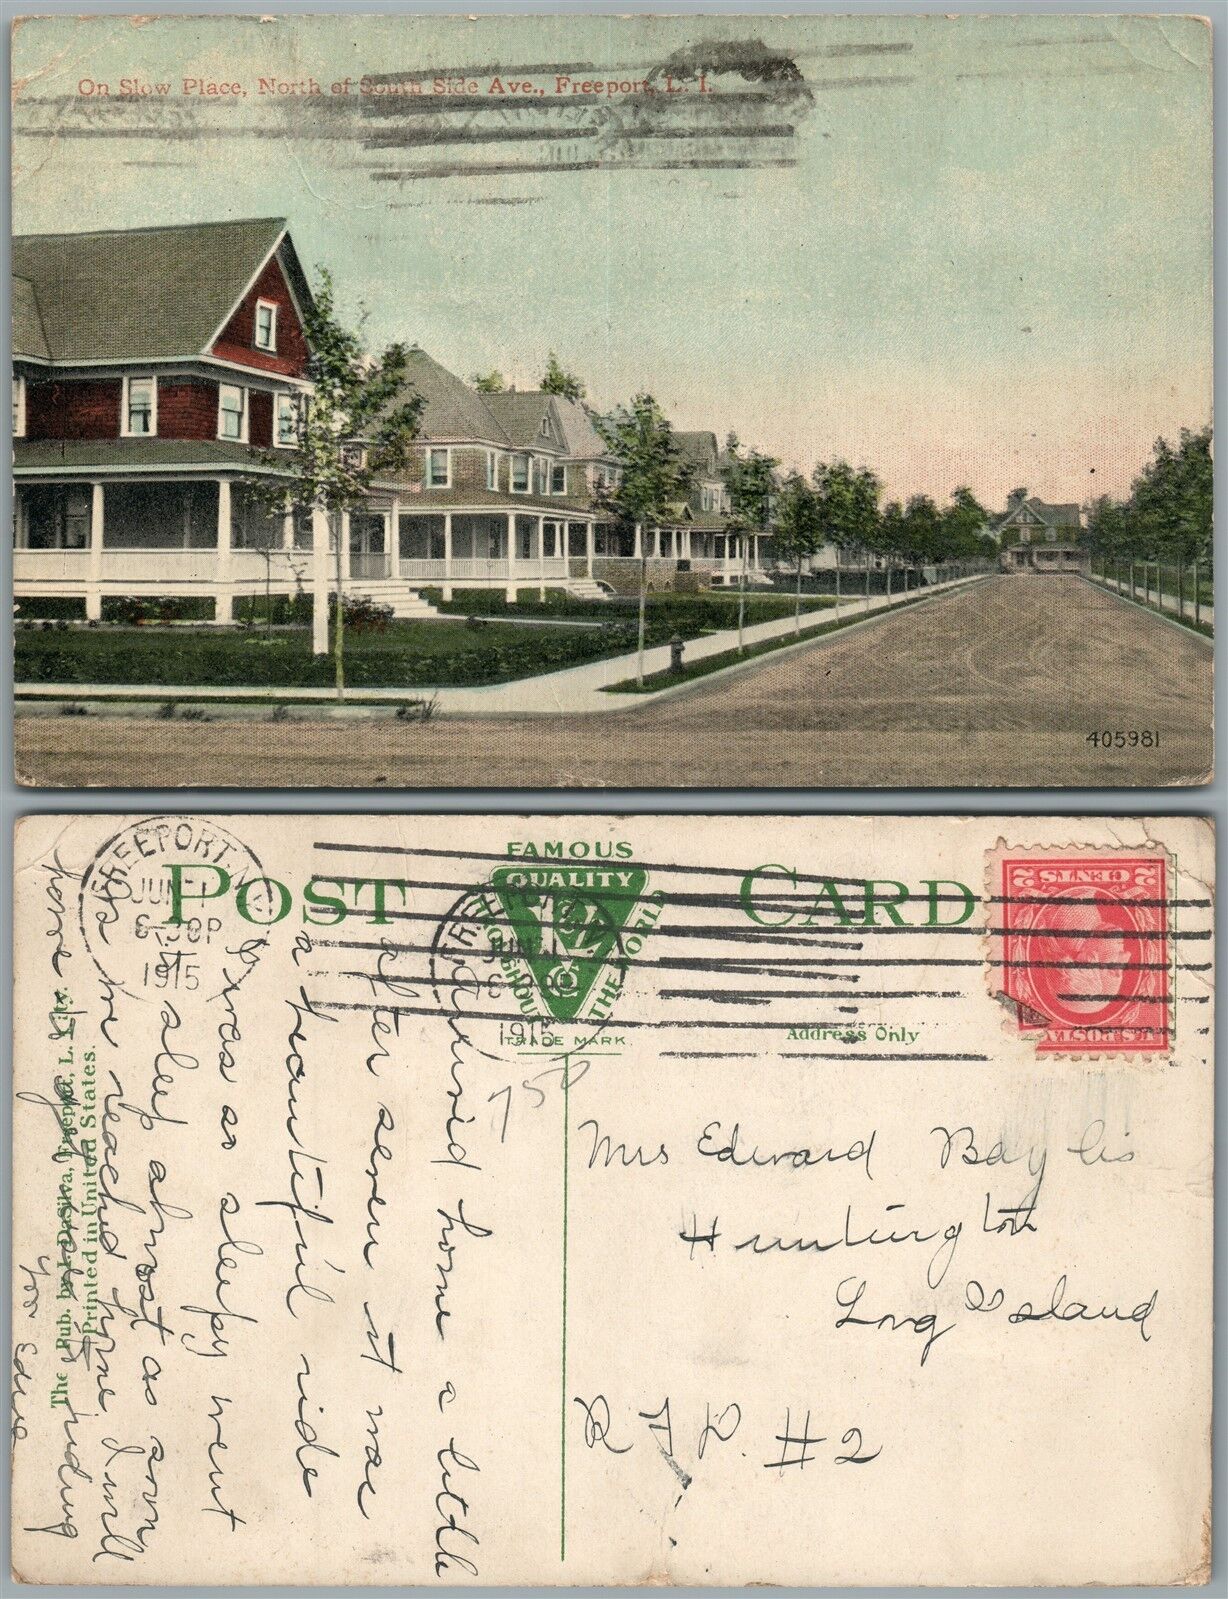 On Slow Place, North of South Side Ave., Freeport, L. I.
405981
POST CARD
FAMOUS
QUALITY
THROUGHOUT THE WORLD
TRADE MARK.
Address Only
FREEPORT, N.Y.
JUN 1
6-30P
1915
FREEPORT, N.Y.
JUN 1
1915
U.S. POSTAGE
2 CENTS 2
750
Mrs Edward Baylis
Huntington
Long Island
R F D. #2
Arrived home a little
after seven it was
a beautiful ride
I was so sleepy went
to sleep almost as soon
as we reached home. I will
have to go riding
Edna
The Pub. by J. DaSilva, Freeport, L. I. City.
Printed in United States.